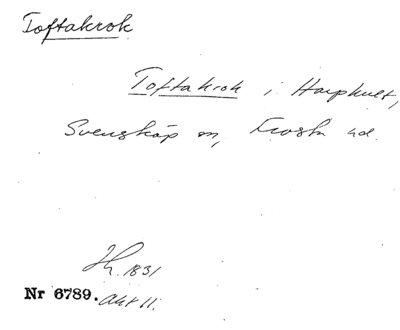 Toftakrok
Toftakrok i Harphult,
Svensköp sn, Frosta hd.
1831
Nr 6789. Akt 11.